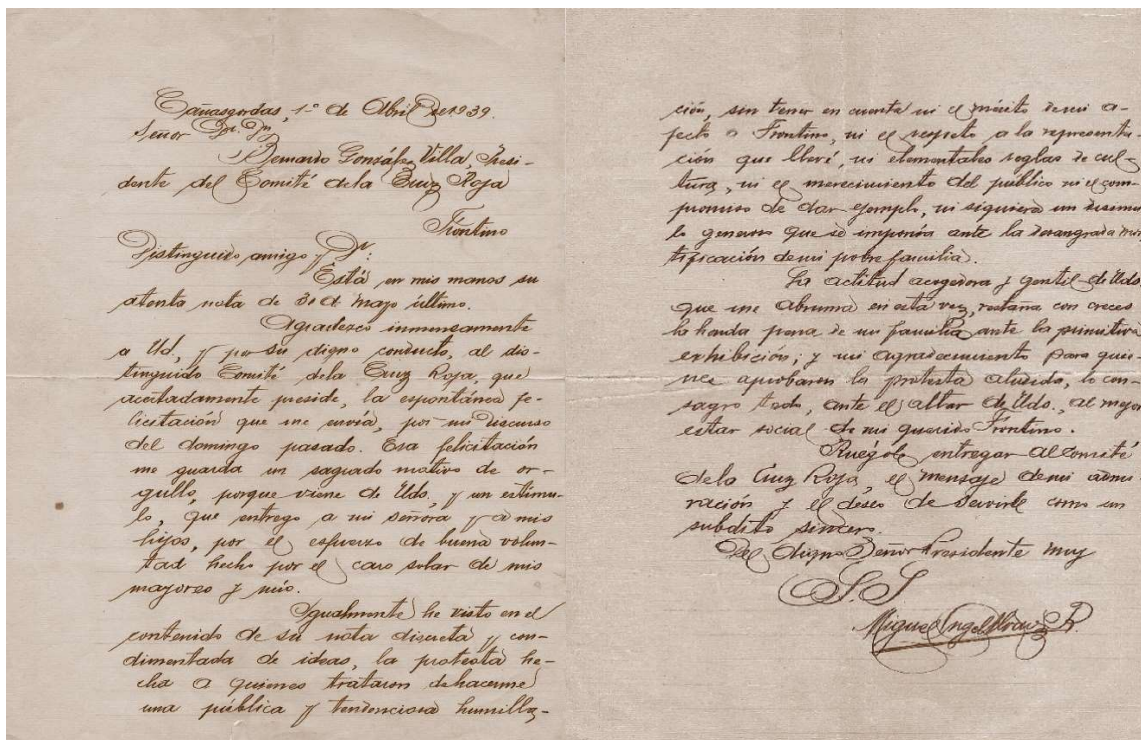 Cañasgordas, 1º de Abril de 1939.
Señor Dr. Dn
Bernardo González Villa, Presi-
dente del Comité de la Cruz Roja
Frontino
Distinguido amigo y Dr:
Está en mis manos su
atenta nota de 30 de mayo último.
Agradezco inmensamente
a Ud, y por su digno conducto, al dis-
tinguido Comité de la Cruz Roja, que
acertadamente preside, la espontánea fe-
licitación que me envía, por mi discurso
del domingo pasado. Esa felicitación
me guarda un sagrado motivo de or-
gullo, porque viene de Uds, y un estímu-
lo, que entrego a mi señora y a mis
hijos, por el esfuerzo de buena volun-
tad hecho por el caro solar de mis
mayores y mío.
Igualmente he visto en el
contenido de su nota discreta y con-
dimentada de ideas, la protesta he-
cha a quienes trataron de hacerme
una pública y tendenciosa humilla-
ción, sin tener en cuenta ni el mérito de mi a-
fecto a Frontino, ni el respeto a la representa
ción que llevé, ni elementales reglas de cul-
tura, ni el merecimiento del público ni el com-
promiso de dar ejemplo, ni siquiera un disimu
lo generoso que se imponía ante la desangrada mor
tificación de mi pobre familia.
La actitud acogedora y gentil de Uds.
que me abruma en esta vez, restaña con creces
la honda pena de mi familia ante la primitiva
exhibición; y mi agradecimiento para quie-
nes aprobaron la protesta aludida, lo con-
sagro todo, ante el altar de Uds., al mejor
estar social de mi querido Frontino.
Ruégole entregar al Comité
de la Cruz Roja, el mensaje de mi admi-
ración y el deseo de servirle como un
subdito sincero.
Del digno Señor Presidente muy
S.S
Miguel Angel Alvarez R.